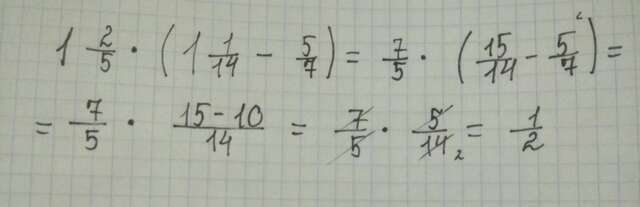 1 2/5 · (1 1/14 - 5/7) = 7/5 · (15/14 - 5/7 ²) =
= 7/5 · (15-10)/14 = 7/5 · 5/14 ₂ = 1/2